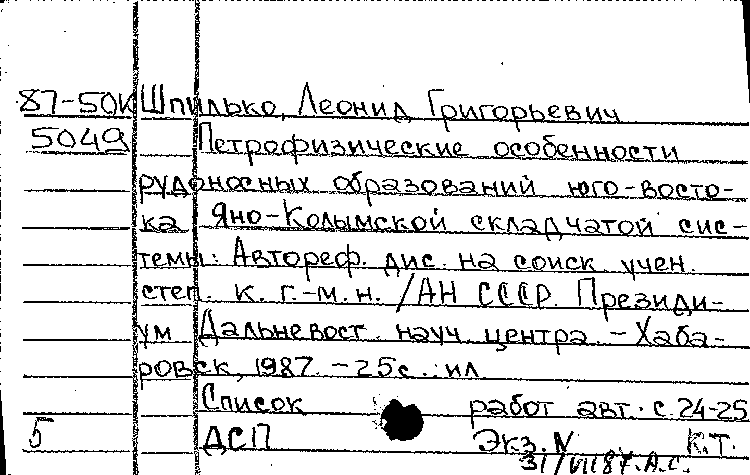 87-50к Шпилько, Леонид Григорьевич
5049 Петрофизические особенности
рудоносных образований юго-восто-
ка Яно-Колымской складчатой сис-
темы: Автореф. дис. на соиск учен.
степ. к. г.-м. н. / АН СССР. Президи-
ум Дальневост. науч. центра. – Хаба-
ровск, 1987. – 25с.: ил
Список работ авт. с. 24-25
5 ДСП Экз. N К.Т.
31/VII87. А.С.